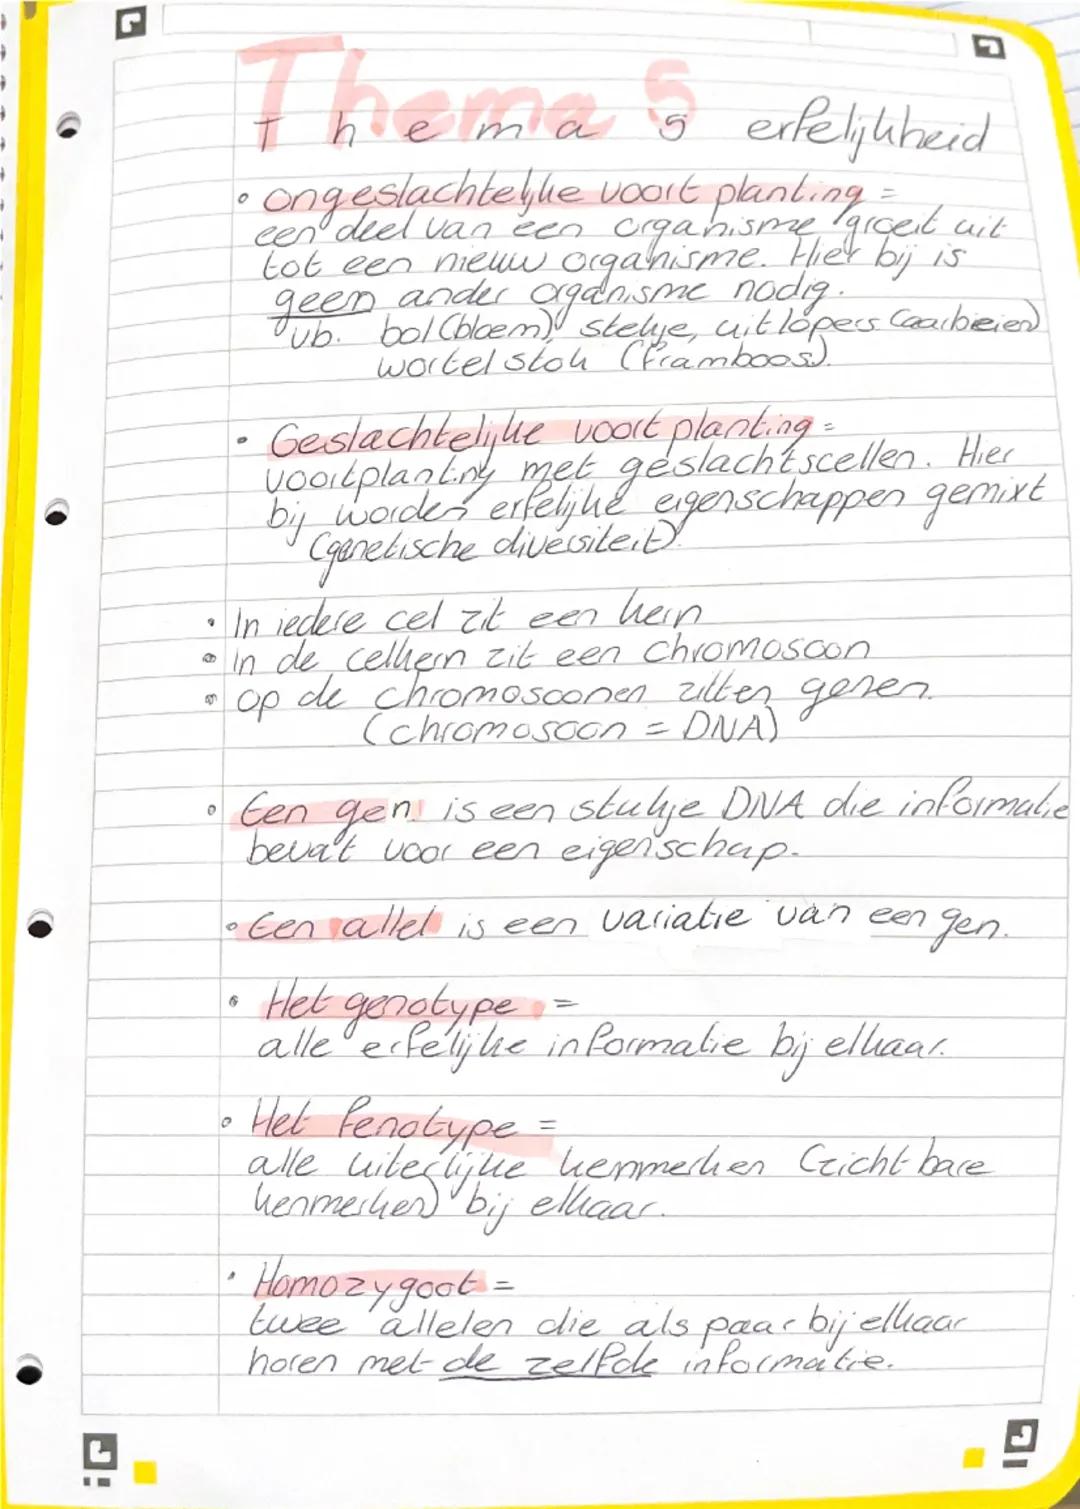 Thema 5
Thema 5 erfelijkheid
• ongeslachtelijke voort planting =
een deel van een organisme groeit uit
tot een nieuw organisme. Hier bij is
geen ander oganisme nodig.
vb. bol (bloem), stekje, uitlopers (aarbeien)
wortel stok (framboos).
• Geslachtelijke voort planting =
voortplanting met geslachtscellen. Hier
bij worden erfelijke eigenschappen gemixt
(genetische diversiteit).
• In iedere cel zit een kern
• in de celkern zit een chromosoon
• op de chromosoonen zitten genen.
(chromosoon = DNA)
• Een gen is een stukje DNA die informatie
bevat voor een eigenschap.
• Een allel is een variatie van een gen.
• Het genotype =
alle erfelijke informatie bij elkaar.
• Het fenotype =
alle uiterlijke kenmerken (zicht bare
kenmerken) bij elkaar.
• Homozygoot =
twee allelen die als paar bij elkaar
horen met de zelfde informatie.